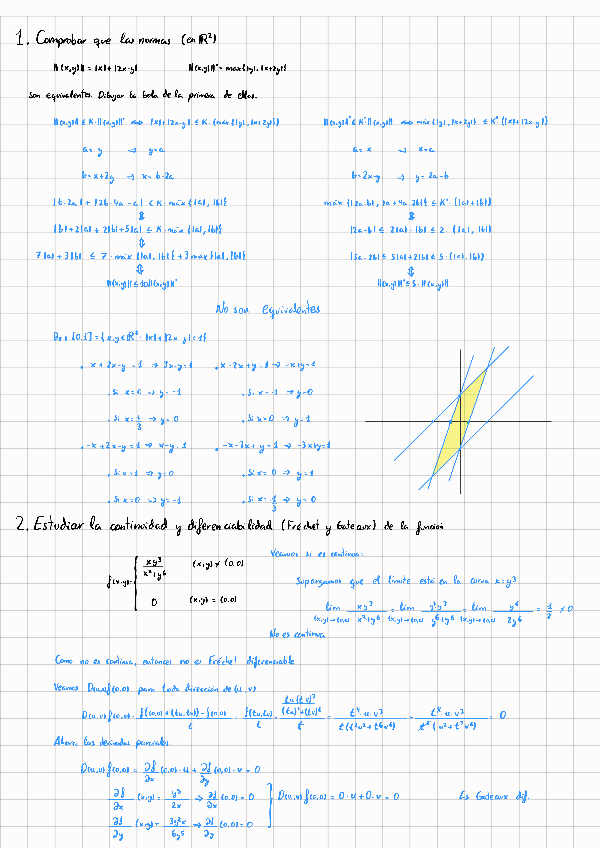 1. Comprobar que las normas (en ℝ²)
‖(x,y)‖ = |x| + |2x-y|    ‖(x,y)‖* = max{|y|, |x+2y|}
son equivalentes. Dibujar la bola de la primera de ellas.
‖(x,y)‖ ≤ K·‖(x,y)‖* ⟺ |x| + |2x-y| ≤ K·(max{|y|, |x+2y|})
a = y → y = a
b = x+2y → x = b-2a
|b-2a| + |2b-4a-a| ≤ K máx{|a|, |b|}
⇕
|b|+2|a| + 2|b|+5|a| ≤ K·máx{|a|, |b|}
⇕
7|a| + 3|b| ≤ 7·máx{|a|, |b|} + 3 max{|a|, |b|}
⇕
‖(x,y)‖ ≤ 10‖(x,y)‖*
‖(x,y)‖* ≤ K'·‖(x,y)‖ ⟺ máx{|y|, |x+2y|} ≤ K'(|x|+|2x-y|)
a = x → x = a
b = 2x-y → y = 2a-b
máx{|2a-b|, |a+4a-2b|} ≤ K'·(|a|+|b|)
⇕
|2a-b| ≤ 2|a|+|b| ≤ 2·(|a|, |b|)
|5a-2b| ≤ 5|a|+2|b| ≤ 5·(|a|, |b|)
⇕
‖(x,y)‖* ≤ 5·‖(x,y)‖
No son equivalentes
[0,1] = {x,y ∈ ℝ² : |x|+|2x-y| = 1}
· x+2x-y = 1 → 3x-y = 1
· Si x=0 → y=-1
· Si x=1/3 → y=0
· -x+2x-y = 1 → x-y = 1
· Si x=1 → y=0
· Si x=0 → y=-1
· x-2x+y = 1 → -x+y = 1
· Si x=-1 → y=0
· Si x=0 → y=1
· -x-2x+y = 1 → -3x+y = 1
· Si x=0 → y=1
· Si x=-1/3 → y=0
2. Estudiar la continuidad y diferenciabilidad (Fréchet y Gateaux) de la función
f(x,y) = { xy³/(x²+y⁶)    (x,y) ≠ (0,0)
0    (x,y) = (0,0)
Veamos si es continua:
Supongamos que el límite está en la curva x=y³
lim (x,y)→(0,0) xy³/(x²+y⁶) = lim (x,y)→(0,0) y³y³/(y⁶+y⁶) = lim (x,y)→(0,0) y⁶/2y⁶ = 1/2 ≠ 0
No es continua
Como no es continua, entonces no es Fréchet diferenciable
Veamos D(u,v)f(0,0) para todo dirección de (u,v)
D(u,v)f(0,0) = f((0,0)+(tu,tv))-f(0,0)/t = f(tu,tv)/t = (tu(tv)³/((tu)²+(tv)⁶))/t = t⁴·u·v³/t(t²u²+t⁶v⁶) = t⁴·u·v³/t³(u²+t⁴v⁶) = 0
Ahora las derivadas parciales
D(u,v)f(0,0) = ∂f/∂x (0,0)·u + ∂f/∂y (0,0)·v = 0
∂f/∂x (x,y) = y³/2x → ∂f/∂x (0,0) = 0
∂f/∂y (x,y) = 3y²x/6y⁵ → ∂f/∂y (0,0) = 0
D(u,v)f(0,0) = 0·u+0·v = 0    Es Gateaux dif.